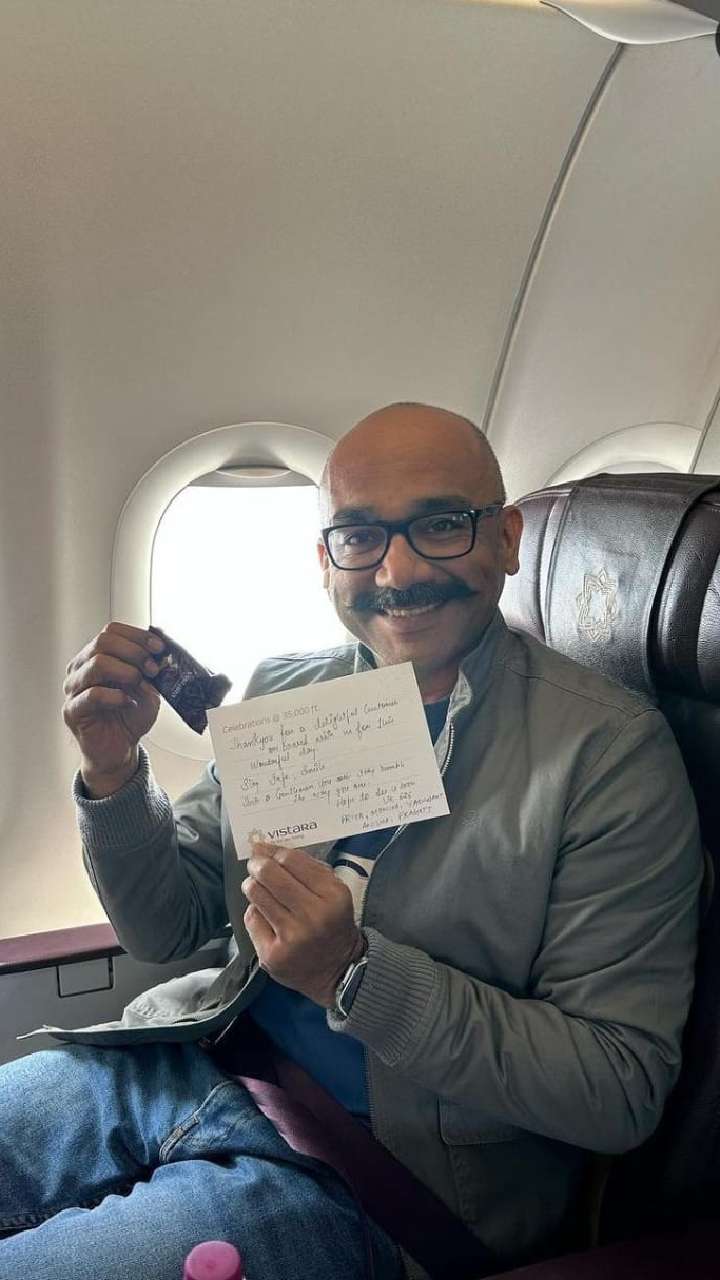 Celebrations @ 35,000 ft.
Thankyou for a delightful Customer
on board with us for this
Wonderful day.
Stay Safe, Smile
Such a Gentleman You are Stay humble
the way you are.
Hope to see u soon
UK
PRIYA, MONICA,
PRAGATI
VISTARA